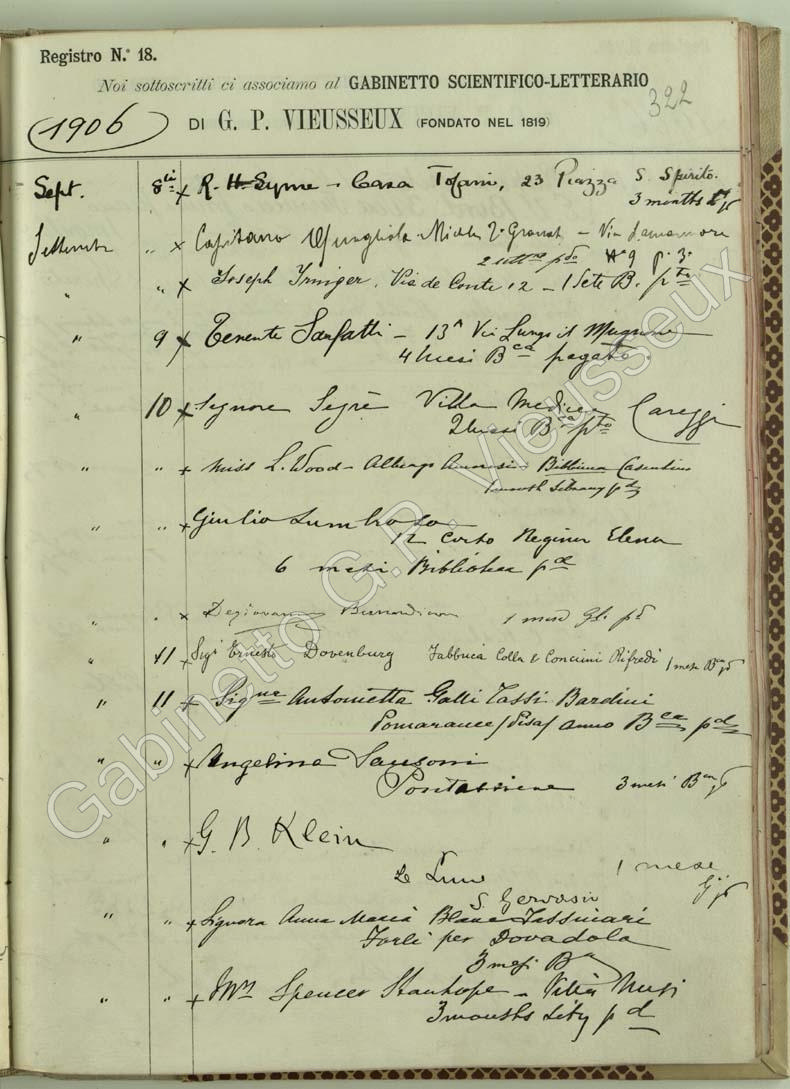 Registro N.° 18.
Noi sottoscritti ci associamo al GABINETTO SCIENTIFICO-LETTERARIO
322
1906
DI G. P. VIEUSSEUX (FONDATO NEL 1819)
Sept. 8 x R. H. Syme - Casa Tofani, 23 Piazza S. Spirito.
3 months
Settembre " x Capitano - Via Lamarmora
N° 9 p. 3°
" " x Joseph Irniger, Via de Conti 12 - 1 Sett B. pto
" 9 x Tenente Sarfatti - 13A Via Lungo il Mugnone
4 Mesi Bca pagato.
" 10 x Signore Segrè Villa Medicea Careggi
2 Mesi B pto
" " x Miss L. Wood - Albergo Bibbiena Casentino
1 month Library pd
" " x Giulio Lumbroso
12 Corso Regina Elena
6 mesi Biblioteca pd
" " x 1 mese pd
" 11 x Ernesto Dovenburg Fabbrica Colla & Concimi Rifredi 1 mese
" 11 x Sigra Antonietta Galli Tassi Bardini
Pomarance (Pisa) anno Bca pd
" " x Angelina Sansoni
Pontassieve 3 mesi
" " x G. B. Klein
1 mese
S. Gervasio
" " x Signora Anna Maria Blanc Tassinari
Forlì per Dovadola
3 mesi B
" " x Mrs Spencer Stanhope - Villa Nuti
3 months Liby pd
Gabinetto G.P. Vieusseux